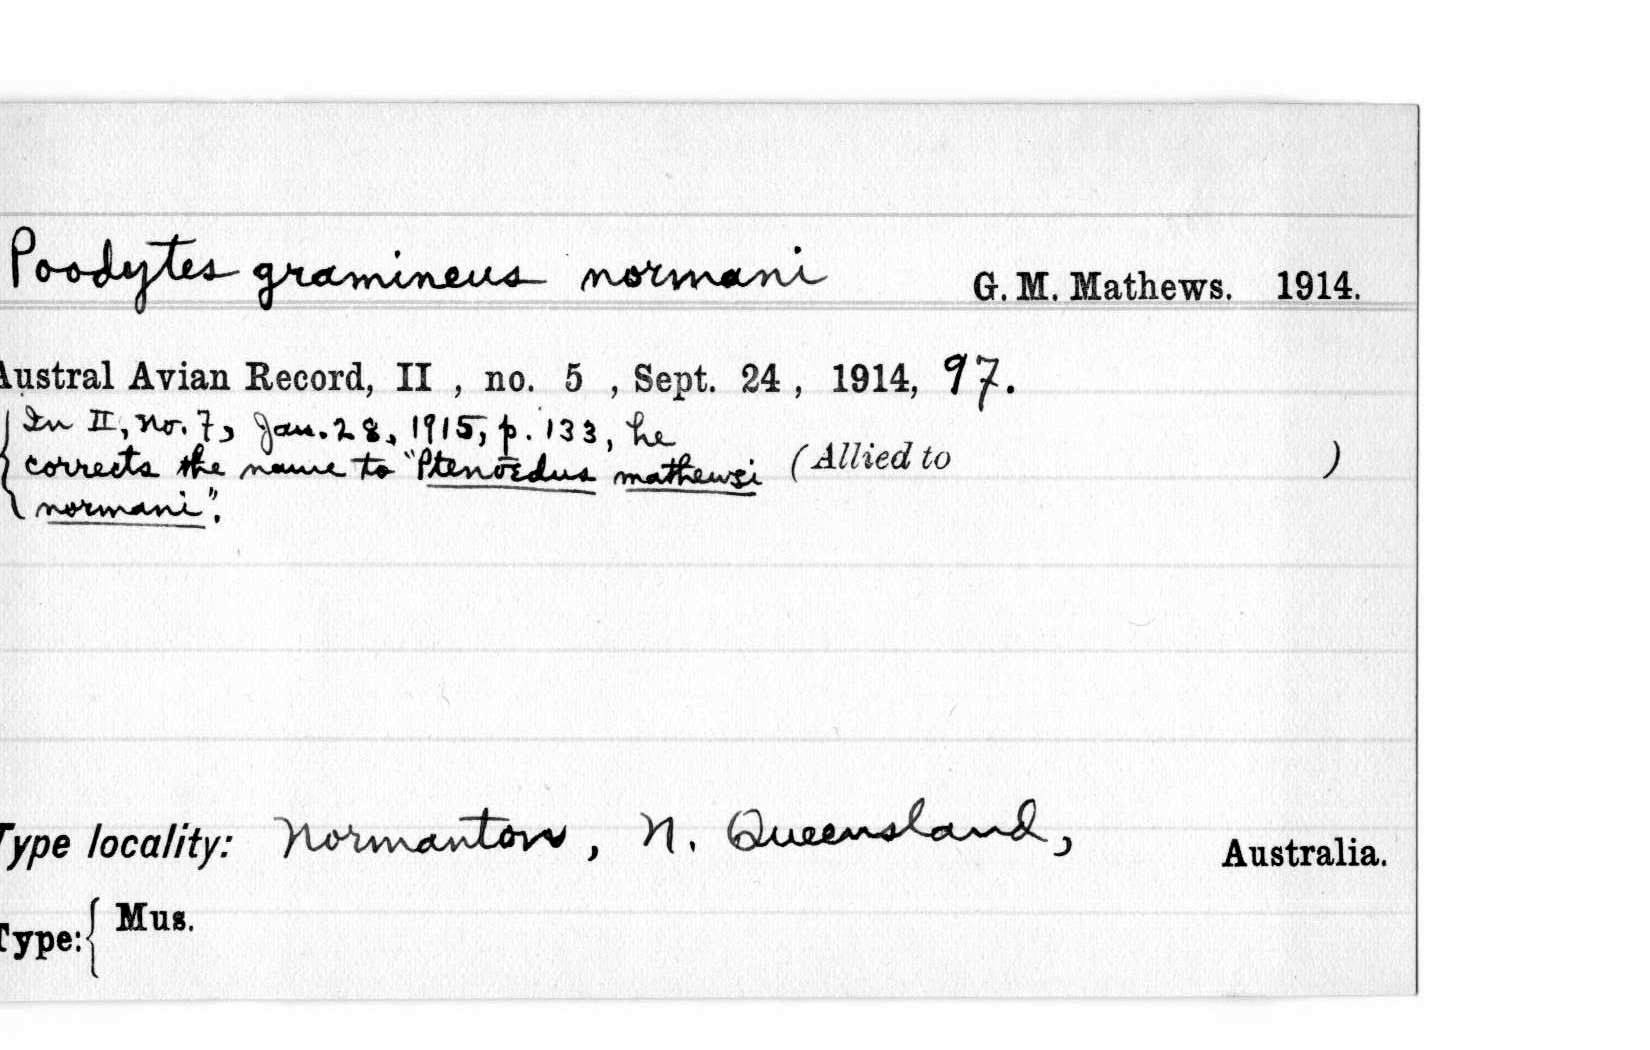 Poodytes gramineus normani G. M. Mathews. 1914.
Austral Avian Record, II , no. 5 , Sept. 24 , 1914, 97.
In II, no. 7, Jan. 28, 1915, p. 133, he
corrects the name to "Ptenoedus mathewsi (Allied to )
normani".
Type locality: Normanton, N. Queensland, Australia.
Type: { Mus.